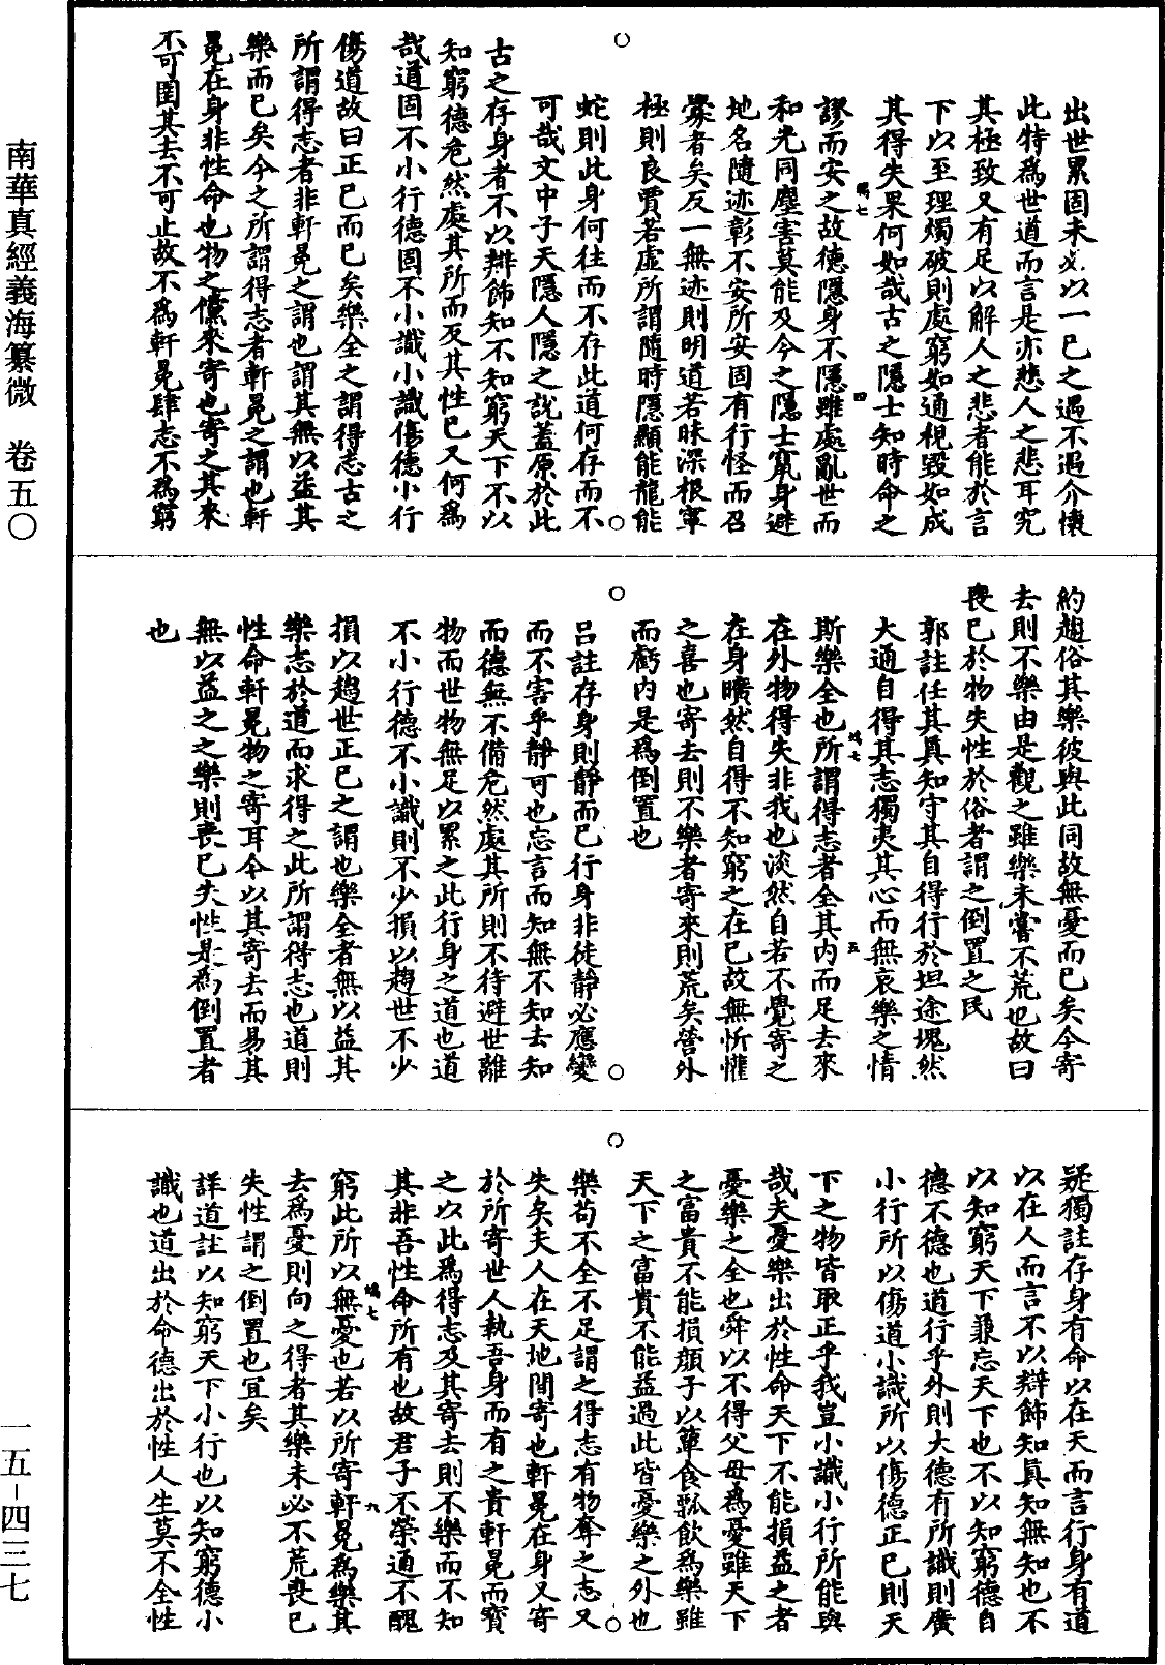 南華真經義海纂微　卷五〇
一五-四三七
出世累固未必以一己之過不過介懷
此特為世道而言是亦悲人之悲耳究
其極致又有足以解人之悲者能於言
下以至理燭破則處窮如通視毀如成
其得失果何如哉古之隱士知時命之
謬而安之故德隱身不隱雖處亂世而
和光同塵害莫能及今之隱士竄身避
地名隨迹彰不安所安固有行怪而召
釁者矣反一無迹則明道若昧深根寧
極則良賈若虛所謂隨時隱顯能龍能
蛇則此身何往而不存此道何存而不
可哉文中子天隱人隱之說蓋原於此
古之存身者不以辯飾知不知窮天下不以
知窮德危然處其所而反其性已又何為
哉道固不小行德固不小識小識傷德小行
傷道故曰正己而已矣樂全之謂得志古之
所謂得志者非軒冕之謂也謂其無以益其
樂而已矣今之所謂得志者軒冕之謂也軒
冕在身非性命也物之儻來寄也寄之其來
不可圉其去不可止故不為軒冕肆志不為窮
約趨俗其樂彼與此同故無憂而已矣今寄
去則不樂由是觀之雖樂未嘗不荒也故曰
喪己於物失性於俗者謂之倒置之民
郭註任其真知守其自得行於坦途塊然
大通自得其志獨夷其心而無哀樂之情
斯樂全也所謂得志者全其內而足去來
在外物得失非我也淡然自若不覺寄之
在身曠然自得不知窮之在己故無忻懼
之喜也寄去則不樂者寄來則荒矣營外
而虧內是為倒置也
呂註存身則靜而已行身非徒靜必應變
而不害乎靜可也忘言而知無不知去知
而德無不備危然處其所則不待避世離
物而世物無足以累之此行身之道也道
不小行德不小識則不少損以趨世不少
損以趨世正己之謂也樂全者無以益其
樂志於道而求得之此所謂得志也道則
性命軒冕物之寄耳今以其寄去而易其
無以益之之樂則喪己失性是為倒置者
也
疑獨註存身有命以在天而言行身有道
以在人而言不以辯飾知真知無知也不
以知窮天下兼忘天下也不以知窮德自
德不德也道行乎外則大德有所識則廣
小行所以傷道小識所以傷德正己則天
下之物皆取正乎我豈小識小行所能與
哉夫憂樂出於性命天下不能損益之者
憂樂之全也舜以不得父母為憂雖天下
之富貴不能損顏子以簞食瓢飲為樂雖
天下之富貴不能益過此皆憂樂之外也
樂苟不全不足謂之得志有物奪之志又
失矣夫人在天地間寄也軒冕在身又寄
於所寄世人執吾身而有之貴軒冕而寶
之以此為得志及其寄去則不樂而不知
其非吾性命所有也故君子不榮通不醜
窮此所以無憂也若以所寄軒冕為樂其
去為憂則向之得者其樂未必不荒喪己
失性謂之倒置也宜矣
詳道註以知窮天下小行也以知窮德小
識也道出於命德出於性人生莫不全性